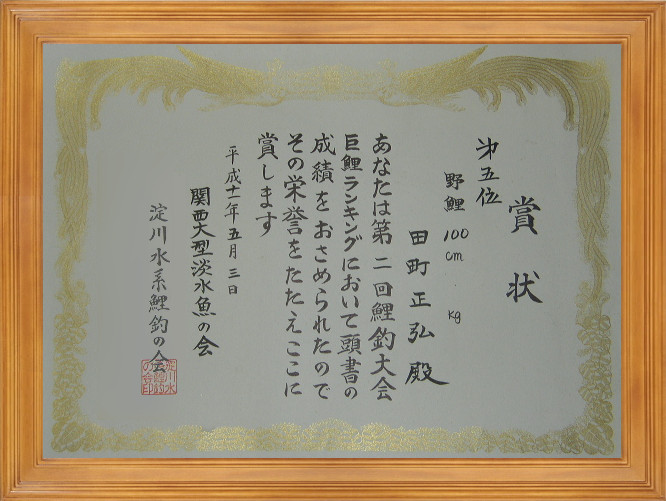 賞状
第五位
野鯉 100cm kg
田町正弘殿
あなたは第二回鯉釣大会
巨鯉ランキングにおいて頭書の
成績をおさめられたので
その栄誉をたたえここに
賞します
平成十一年五月三日
関西大型淡水魚の会
淀川水系鯉釣の会